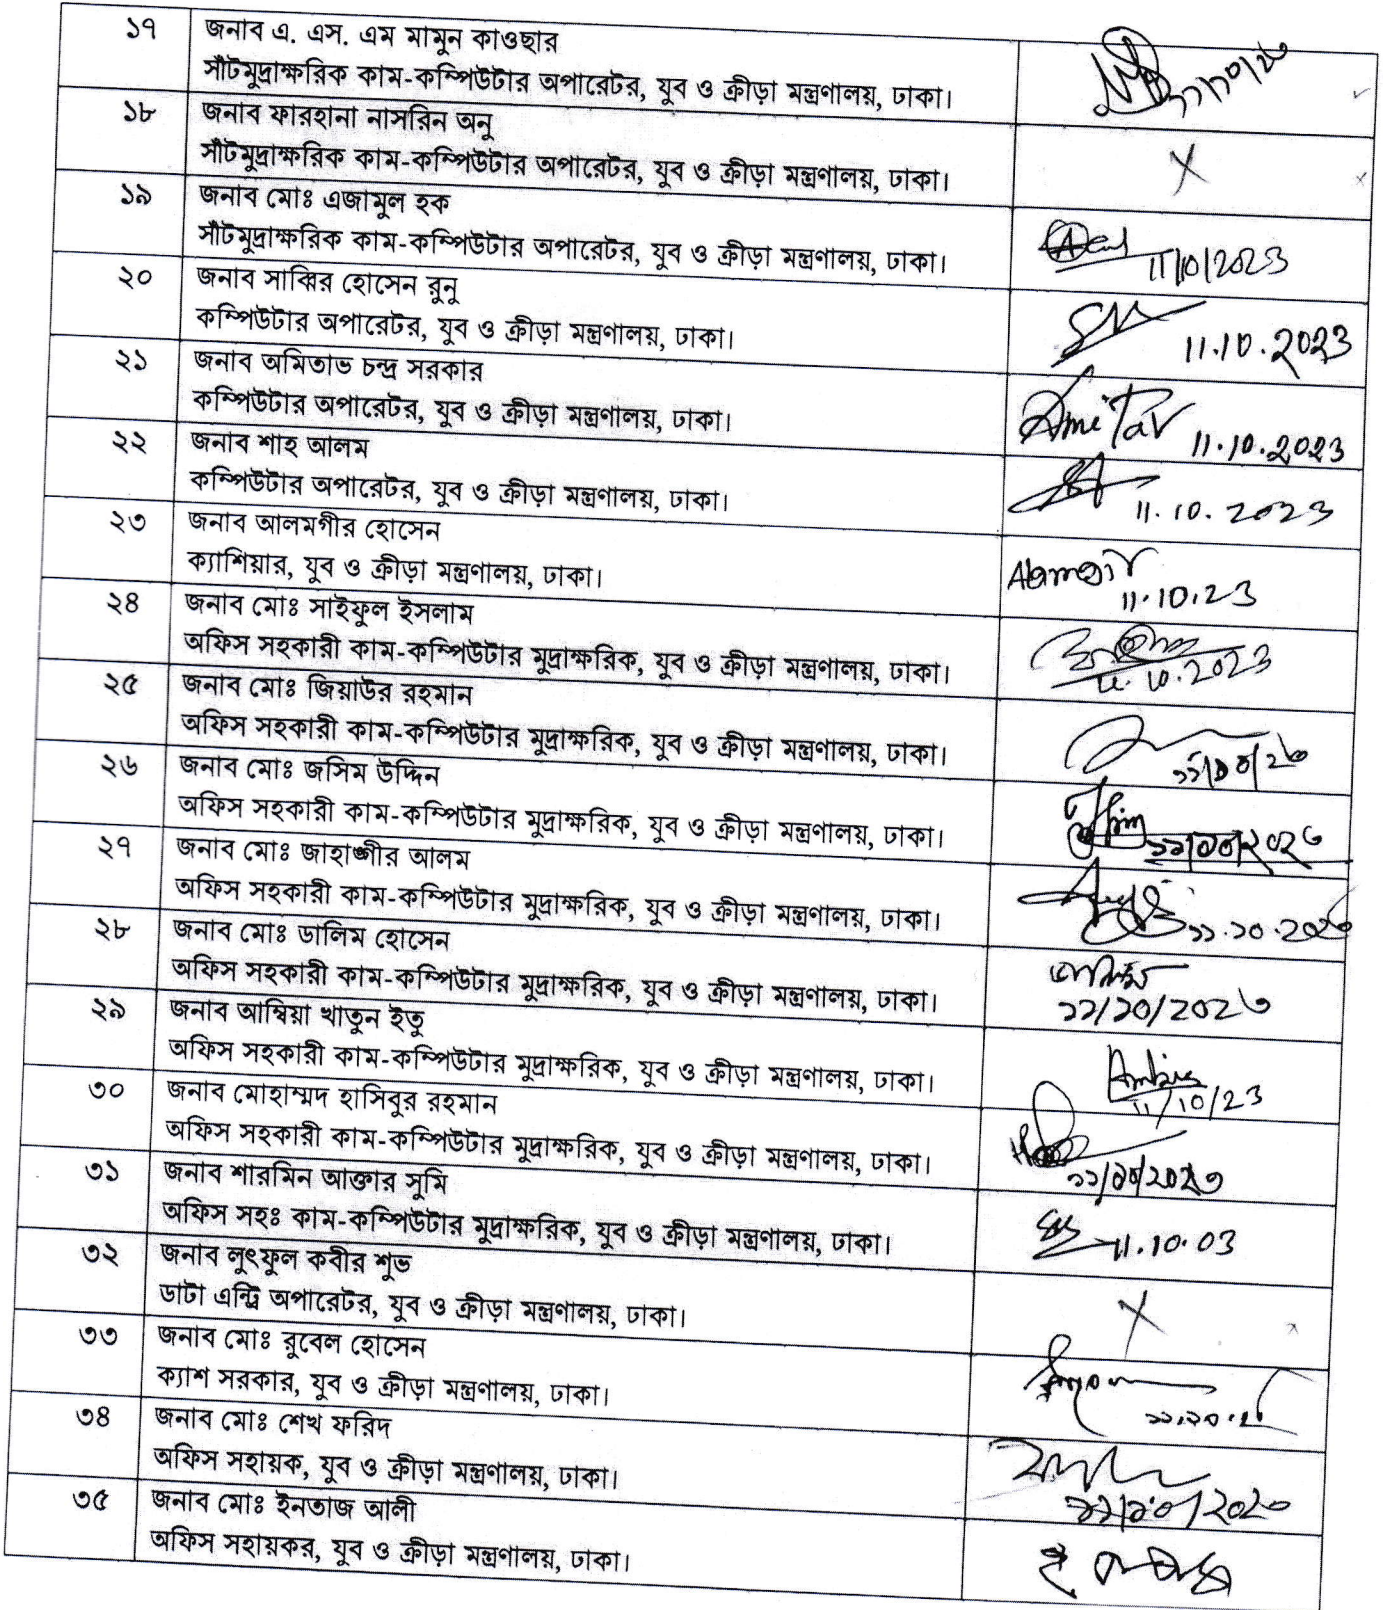 ১৭ জনাব এ. এস. এম মামুন কাওছার
সাঁটমুদ্রাক্ষরিক কাম-কম্পিউটার অপারেটর, যুব ও ক্রীড়া মন্ত্রণালয়, ঢাকা।
১৮ জনাব ফারহানা নাসরিন অনু
সাঁটমুদ্রাক্ষরিক কাম-কম্পিউটার অপারেটর, যুব ও ক্রীড়া মন্ত্রণালয়, ঢাকা। X
১৯ জনাব মোঃ এজামুল হক
সাঁটমুদ্রাক্ষরিক কাম-কম্পিউটার অপারেটর, যুব ও ক্রীড়া মন্ত্রণালয়, ঢাকা। 11/10/2023
২০ জনাব সাব্বির হোসেন রুনু
কম্পিউটার অপারেটর, যুব ও ক্রীড়া মন্ত্রণালয়, ঢাকা। 11.10.2023
২১ জনাব অমিতাভ চন্দ্র সরকার
কম্পিউটার অপারেটর, যুব ও ক্রীড়া মন্ত্রণালয়, ঢাকা। Amitav 11.10.2023
২২ জনাব শাহ আলম
কম্পিউটার অপারেটর, যুব ও ক্রীড়া মন্ত্রণালয়, ঢাকা। 11.10.2023
২৩ জনাব আলমগীর হোসেন
ক্যাশিয়ার, যুব ও ক্রীড়া মন্ত্রণালয়, ঢাকা। Alamgir 11.10.23
২৪ জনাব মোঃ সাইফুল ইসলাম
অফিস সহকারী কাম-কম্পিউটার মুদ্রাক্ষরিক, যুব ও ক্রীড়া মন্ত্রণালয়, ঢাকা। 11.10.2023
২৫ জনাব মোঃ জিয়াউর রহমান
অফিস সহকারী কাম-কম্পিউটার মুদ্রাক্ষরিক, যুব ও ক্রীড়া মন্ত্রণালয়, ঢাকা। ১১/১০/২৩
২৬ জনাব মোঃ জসিম উদ্দিন
অফিস সহকারী কাম-কম্পিউটার মুদ্রাক্ষরিক, যুব ও ক্রীড়া মন্ত্রণালয়, ঢাকা। ১১/১০/২০২৩
২৭ জনাব মোঃ জাহাঙ্গীর আলম
অফিস সহকারী কাম-কম্পিউটার মুদ্রাক্ষরিক, যুব ও ক্রীড়া মন্ত্রণালয়, ঢাকা। ১১.১০.২০২৩
২৮ জনাব মোঃ ডালিম হোসেন
অফিস সহকারী কাম-কম্পিউটার মুদ্রাক্ষরিক, যুব ও ক্রীড়া মন্ত্রণালয়, ঢাকা। ডালিম ১১/১০/২০২৩
২৯ জনাব আম্বিয়া খাতুন ইতু
অফিস সহকারী কাম-কম্পিউটার মুদ্রাক্ষরিক, যুব ও ক্রীড়া মন্ত্রণালয়, ঢাকা। 11/10/23
৩০ জনাব মোহাম্মদ হাসিবুর রহমান
অফিস সহকারী কাম-কম্পিউটার মুদ্রাক্ষরিক, যুব ও ক্রীড়া মন্ত্রণালয়, ঢাকা। ১১/১০/২০২৩
৩১ জনাব শারমিন আক্তার সুমি
অফিস সহঃ কাম-কম্পিউটার মুদ্রাক্ষরিক, যুব ও ক্রীড়া মন্ত্রণালয়, ঢাকা। 11.10.03
৩২ জনাব লুৎফুল কবীর শুভ
ডাটা এন্ট্রি অপারেটর, যুব ও ক্রীড়া মন্ত্রণালয়, ঢাকা। X
৩৩ জনাব মোঃ রুবেল হোসেন
ক্যাশ সরকার, যুব ও ক্রীড়া মন্ত্রণালয়, ঢাকা।
৩৪ জনাব মোঃ শেখ ফরিদ
অফিস সহায়ক, যুব ও ক্রীড়া মন্ত্রণালয়, ঢাকা।
৩৫ জনাব মোঃ ইনতাজ আলী
অফিস সহায়কর, যুব ও ক্রীড়া মন্ত্রণালয়, ঢাকা।